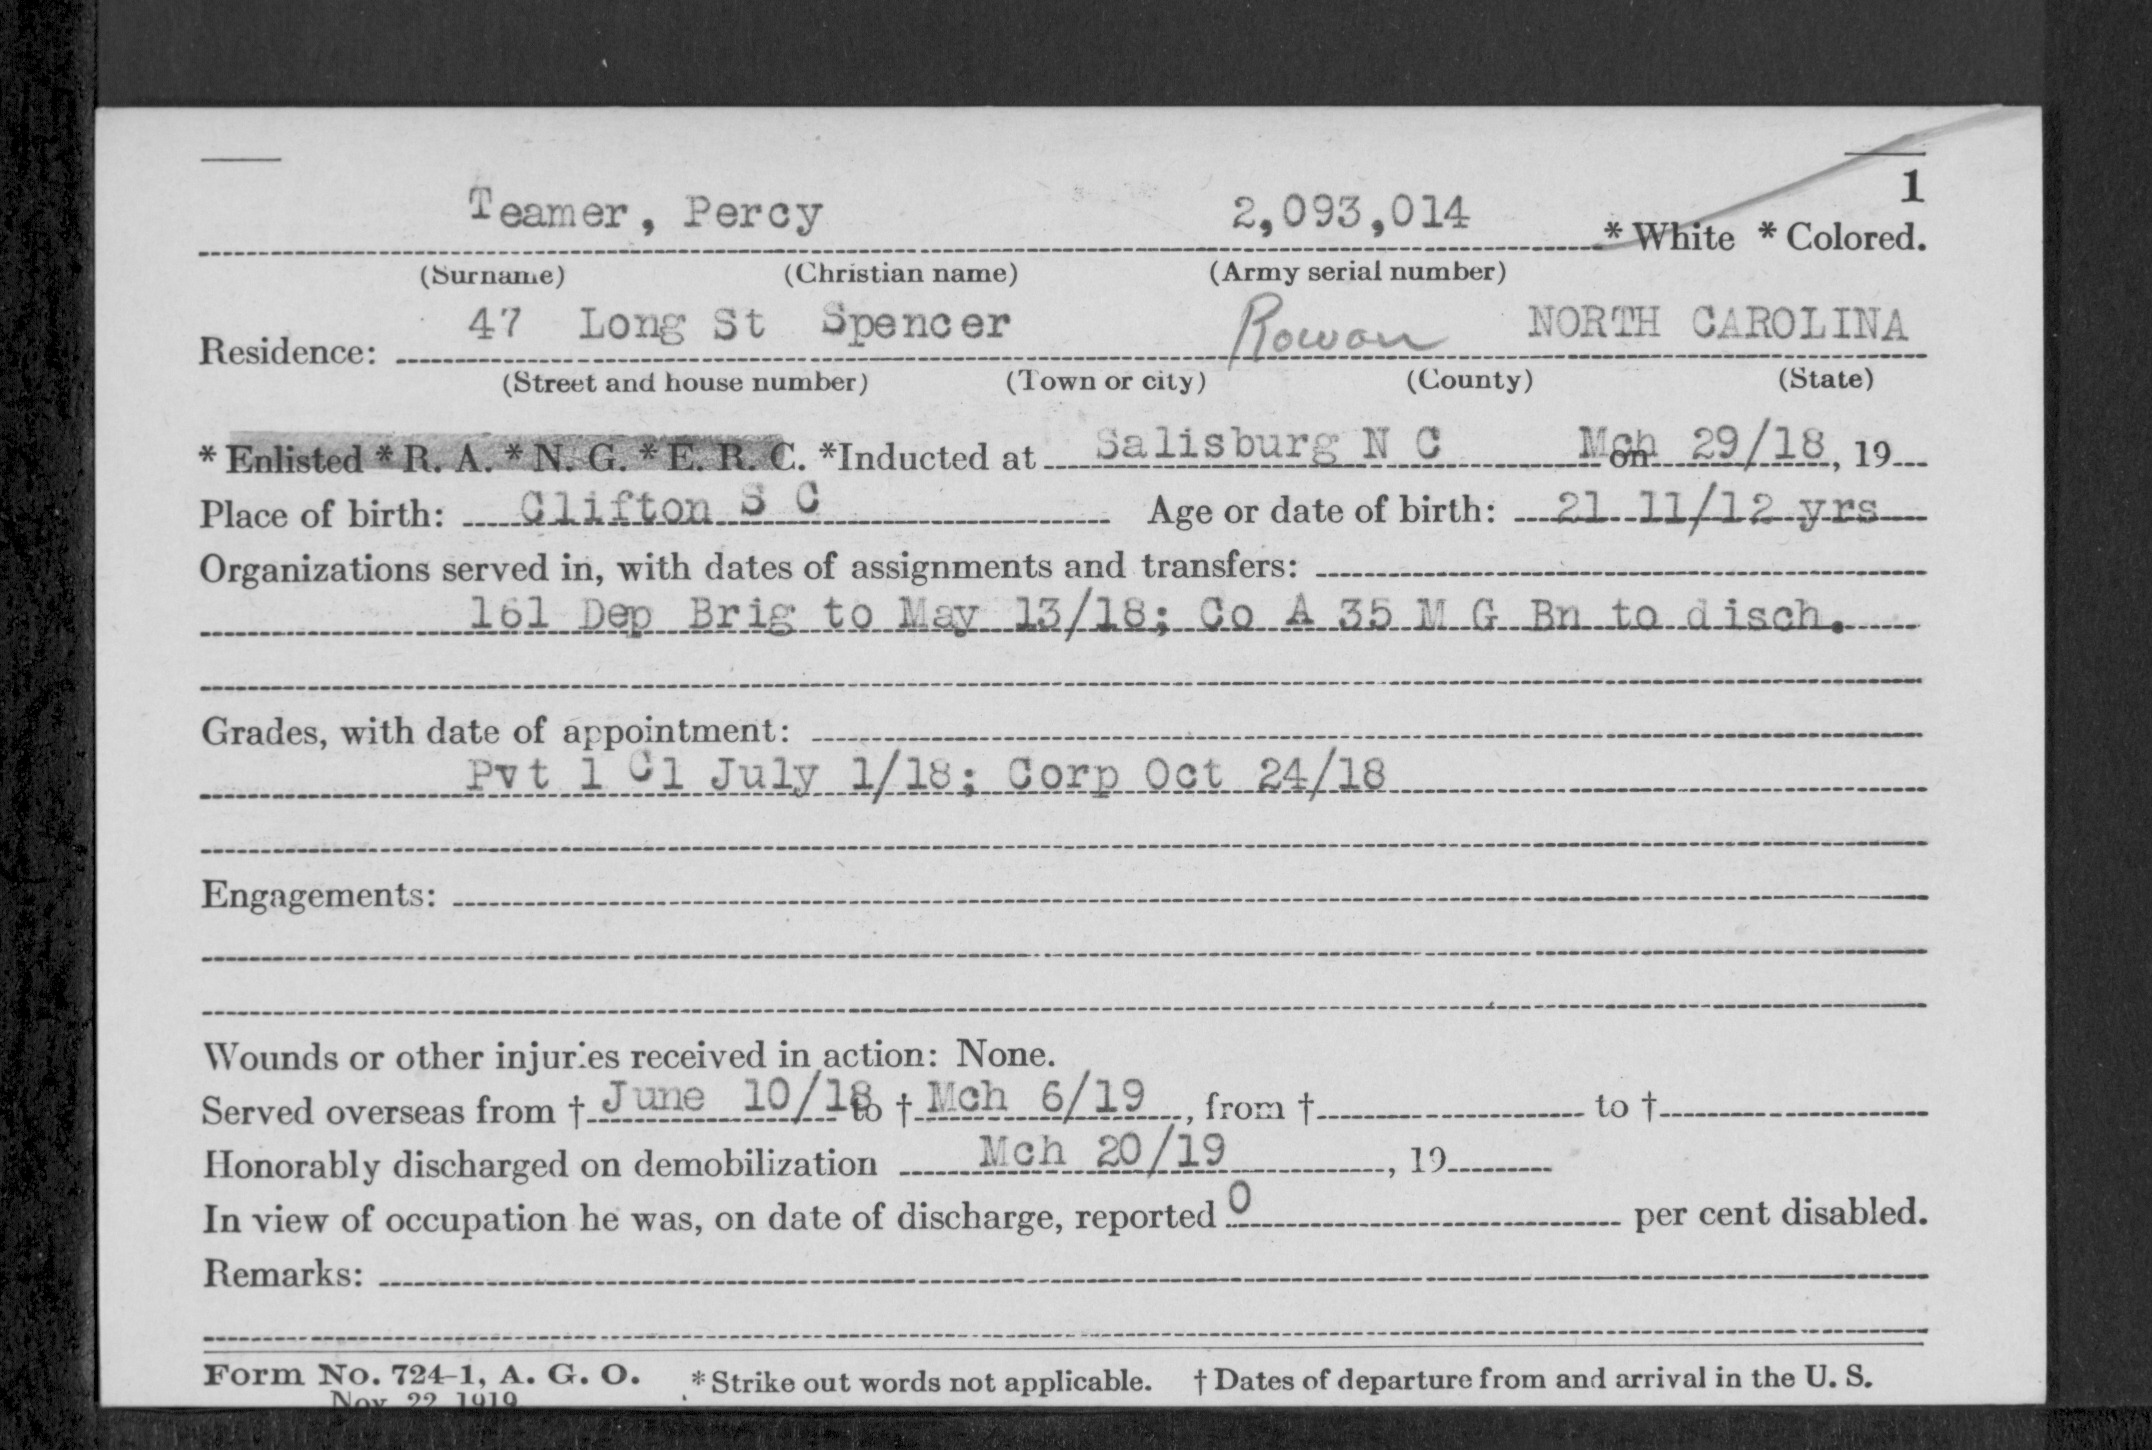 1
Teamer, Percy 2,093,014 * White * Colored.
(Surname) (Christian name) (Army serial number)
Residence: 47 Long St Spencer Rowan NORTH CAROLINA
(Street and house number) (Town or city) (County) (State)
* Enlisted * R. A. * N. G. * E. R. C. *Inducted at Salisburg N C on Mch 29/18, 19
Place of birth: Clifton S C Age or date of birth: 21 11/12 yrs
Organizations served in, with dates of assignments and transfers:
161 Dep Brig to May 13/18; Co A 35 M G Bn to disch.
Grades, with date of appointment:
Pvt 1 Cl July 1/18; Corp Oct 24/18
Engagements:
Wounds or other injuries received in action: None.
Served overseas from † June 10/18 to † Mch 6/19, from † to †
Honorably discharged on demobilization Mch 20/19, 19
In view of occupation he was, on date of discharge, reported 0 per cent disabled.
Remarks:
Form No. 724-1, A. G. O. * Strike out words not applicable. † Dates of departure from and arrival in the U. S.
Nov. 22, 1919